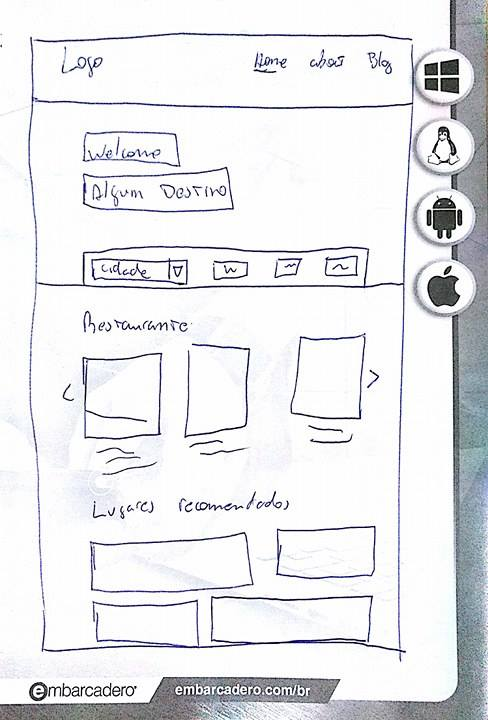 Logo
Home about Blog
Welcome
Algum Destino
cidade
Restaurante
< >
Lugares recomendados
embarcadero
embarcadero.com/br